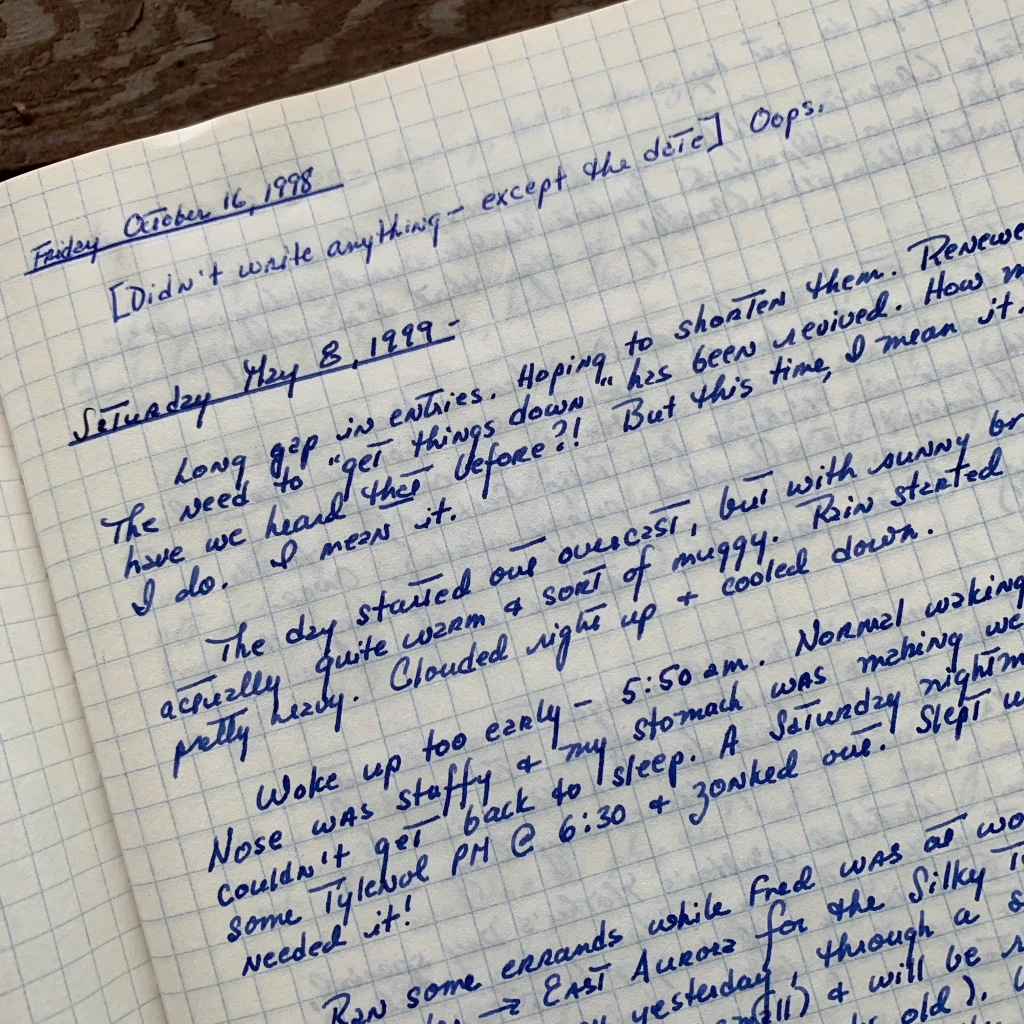 Friday October 16, 1998
[Didn't write anything - except the date] Oops.
Saturday May 8, 1999 -
Long gap in entries. Hoping to shorten them. Renewe
The need to "get things down" has been revived. How m
have we heard that before?! But this time, I mean it.
I do. I mean it.
The day started out overcast, but with sunny br
actually quite warm & sort of muggy. Rain started
pretty heavy. Clouded right up & cooled down.
Woke up too early - 5:50 am. Normal waking
Nose was stuffy & my stomach was making we
couldn't get back to sleep. A Saturday nightm
some Tylenol PM @ 6:30 & zonked out. Slept u
needed it!
Ran some errands while Fred was at wo
→ East Aurora for the Silky T
yesterday, through a s
small) & will be
old).